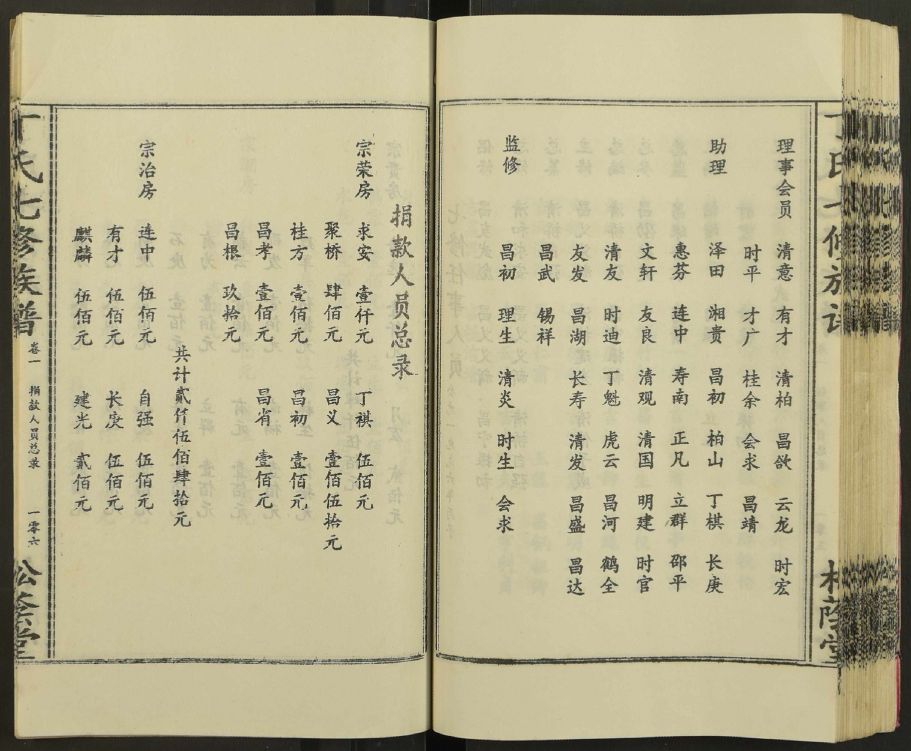 理事会员 清意 有才 清柏 昌欲 云龙 时宏
时平 才广 桂余 会求 昌靖
助理 泽田 湘贵 昌初 柏山 丁棋 长庚
惠芬 连中 寿南 正凡 立群 邵平
文轩 友良 清观 清国 明建 时官
清友 时迪 丁魁 虎云 昌河 鹤全
友发 昌湖 长寿 清发 昌盛 昌达
昌武 锡祥
监修 昌初 理生 清炎 时生 会求
捐款人员总录
宗荣房 求安 壹仟元 丁祺 伍佰元
聚桥 肆佰元 昌义 壹佰伍拾元
桂方 壹佰元 昌初 壹佰元
昌孝 壹佰元 昌省 壹佰元
昌根 玖拾元
共计贰仟伍佰肆拾元
宗治房 连中 伍佰元 自强 伍佰元
有才 伍佰元 长庚 伍佰元
麒麟 伍佰元 建光 贰佰元
丁氏七修族谱 卷一 捐款人员总录 一零六 松荫堂